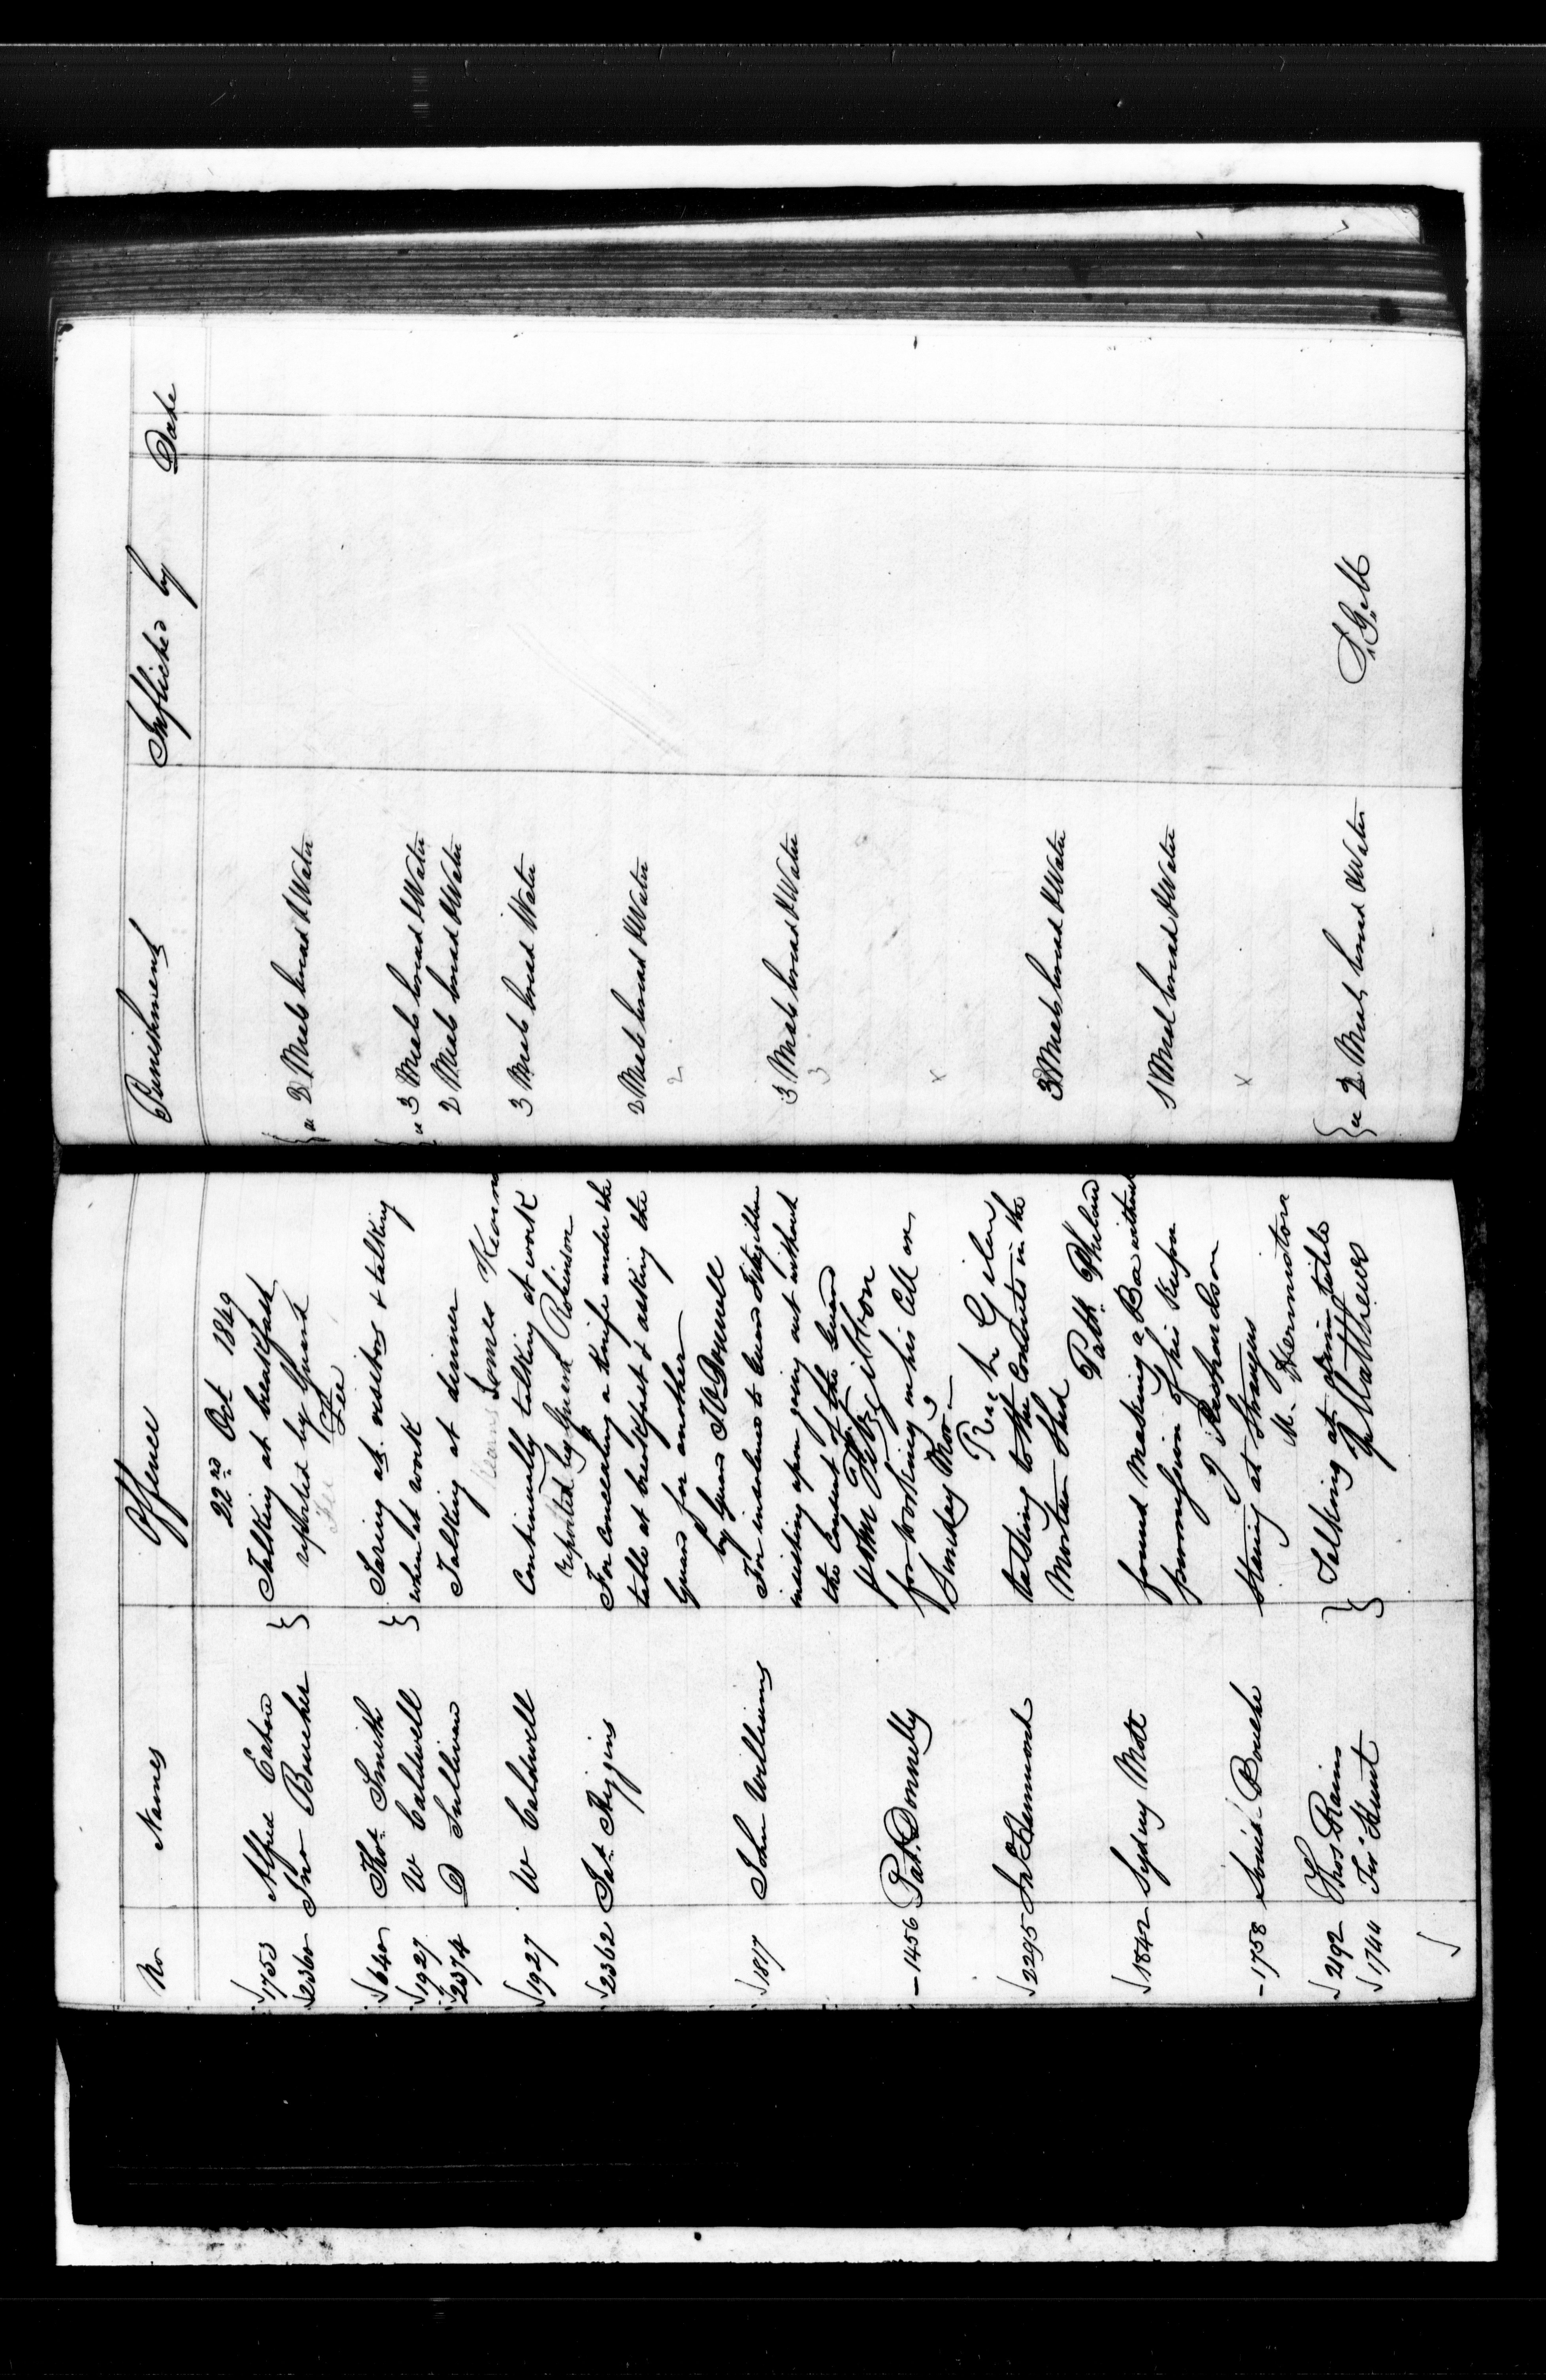 No Names Offence Punishment Inflicted by Date
22nd Oct 1849
√1753 Alfred Eaton } Talking at breakfast
√2360 Jno Boucher reported by Guard } a 2 Meals bread & Water
Fee
√640 Thos Smith } Staring at visitors & talking
√1927 W Caldwell when at work } a 3 Meals bread & Water
√2374 D Sullivan Talking at dinner 2 Meals bread & Water
James Kearns
√1927 W Caldwell Continually talking at work 3 Meals bread Water
reported by Guard Robinson
√2362 Pat Higgins For Concealing a Knife under the
table at breakfast & asking the 2 Meals bread & Water
Guard for another 2
by Guard McDonnell
√1817 John Williams For insolence to Guard Fitzgibbon
insisting upon going out without 3 Meals bread & Water
the Consent of the Guard 3
John Fitzgibbon
– 1456 Pat. Donnelly for working in his Cell on x
Sunday Mor –
√2295 Hammond talking to the Convicts in the
Morten Shed 3 Meals bread & Water
Patk Phelan
√1842 Sydney Mott found Making a Box without
permission of his Keeper 1 Meal bread & Water
J Richardson
– 1758 Louis Bouche Staring at Strangers x
M. Hermiston
√2192 Thos Rains } Talking at dinner table }
√1744 Hunt Matthews a 2 Meals bread & Water
√